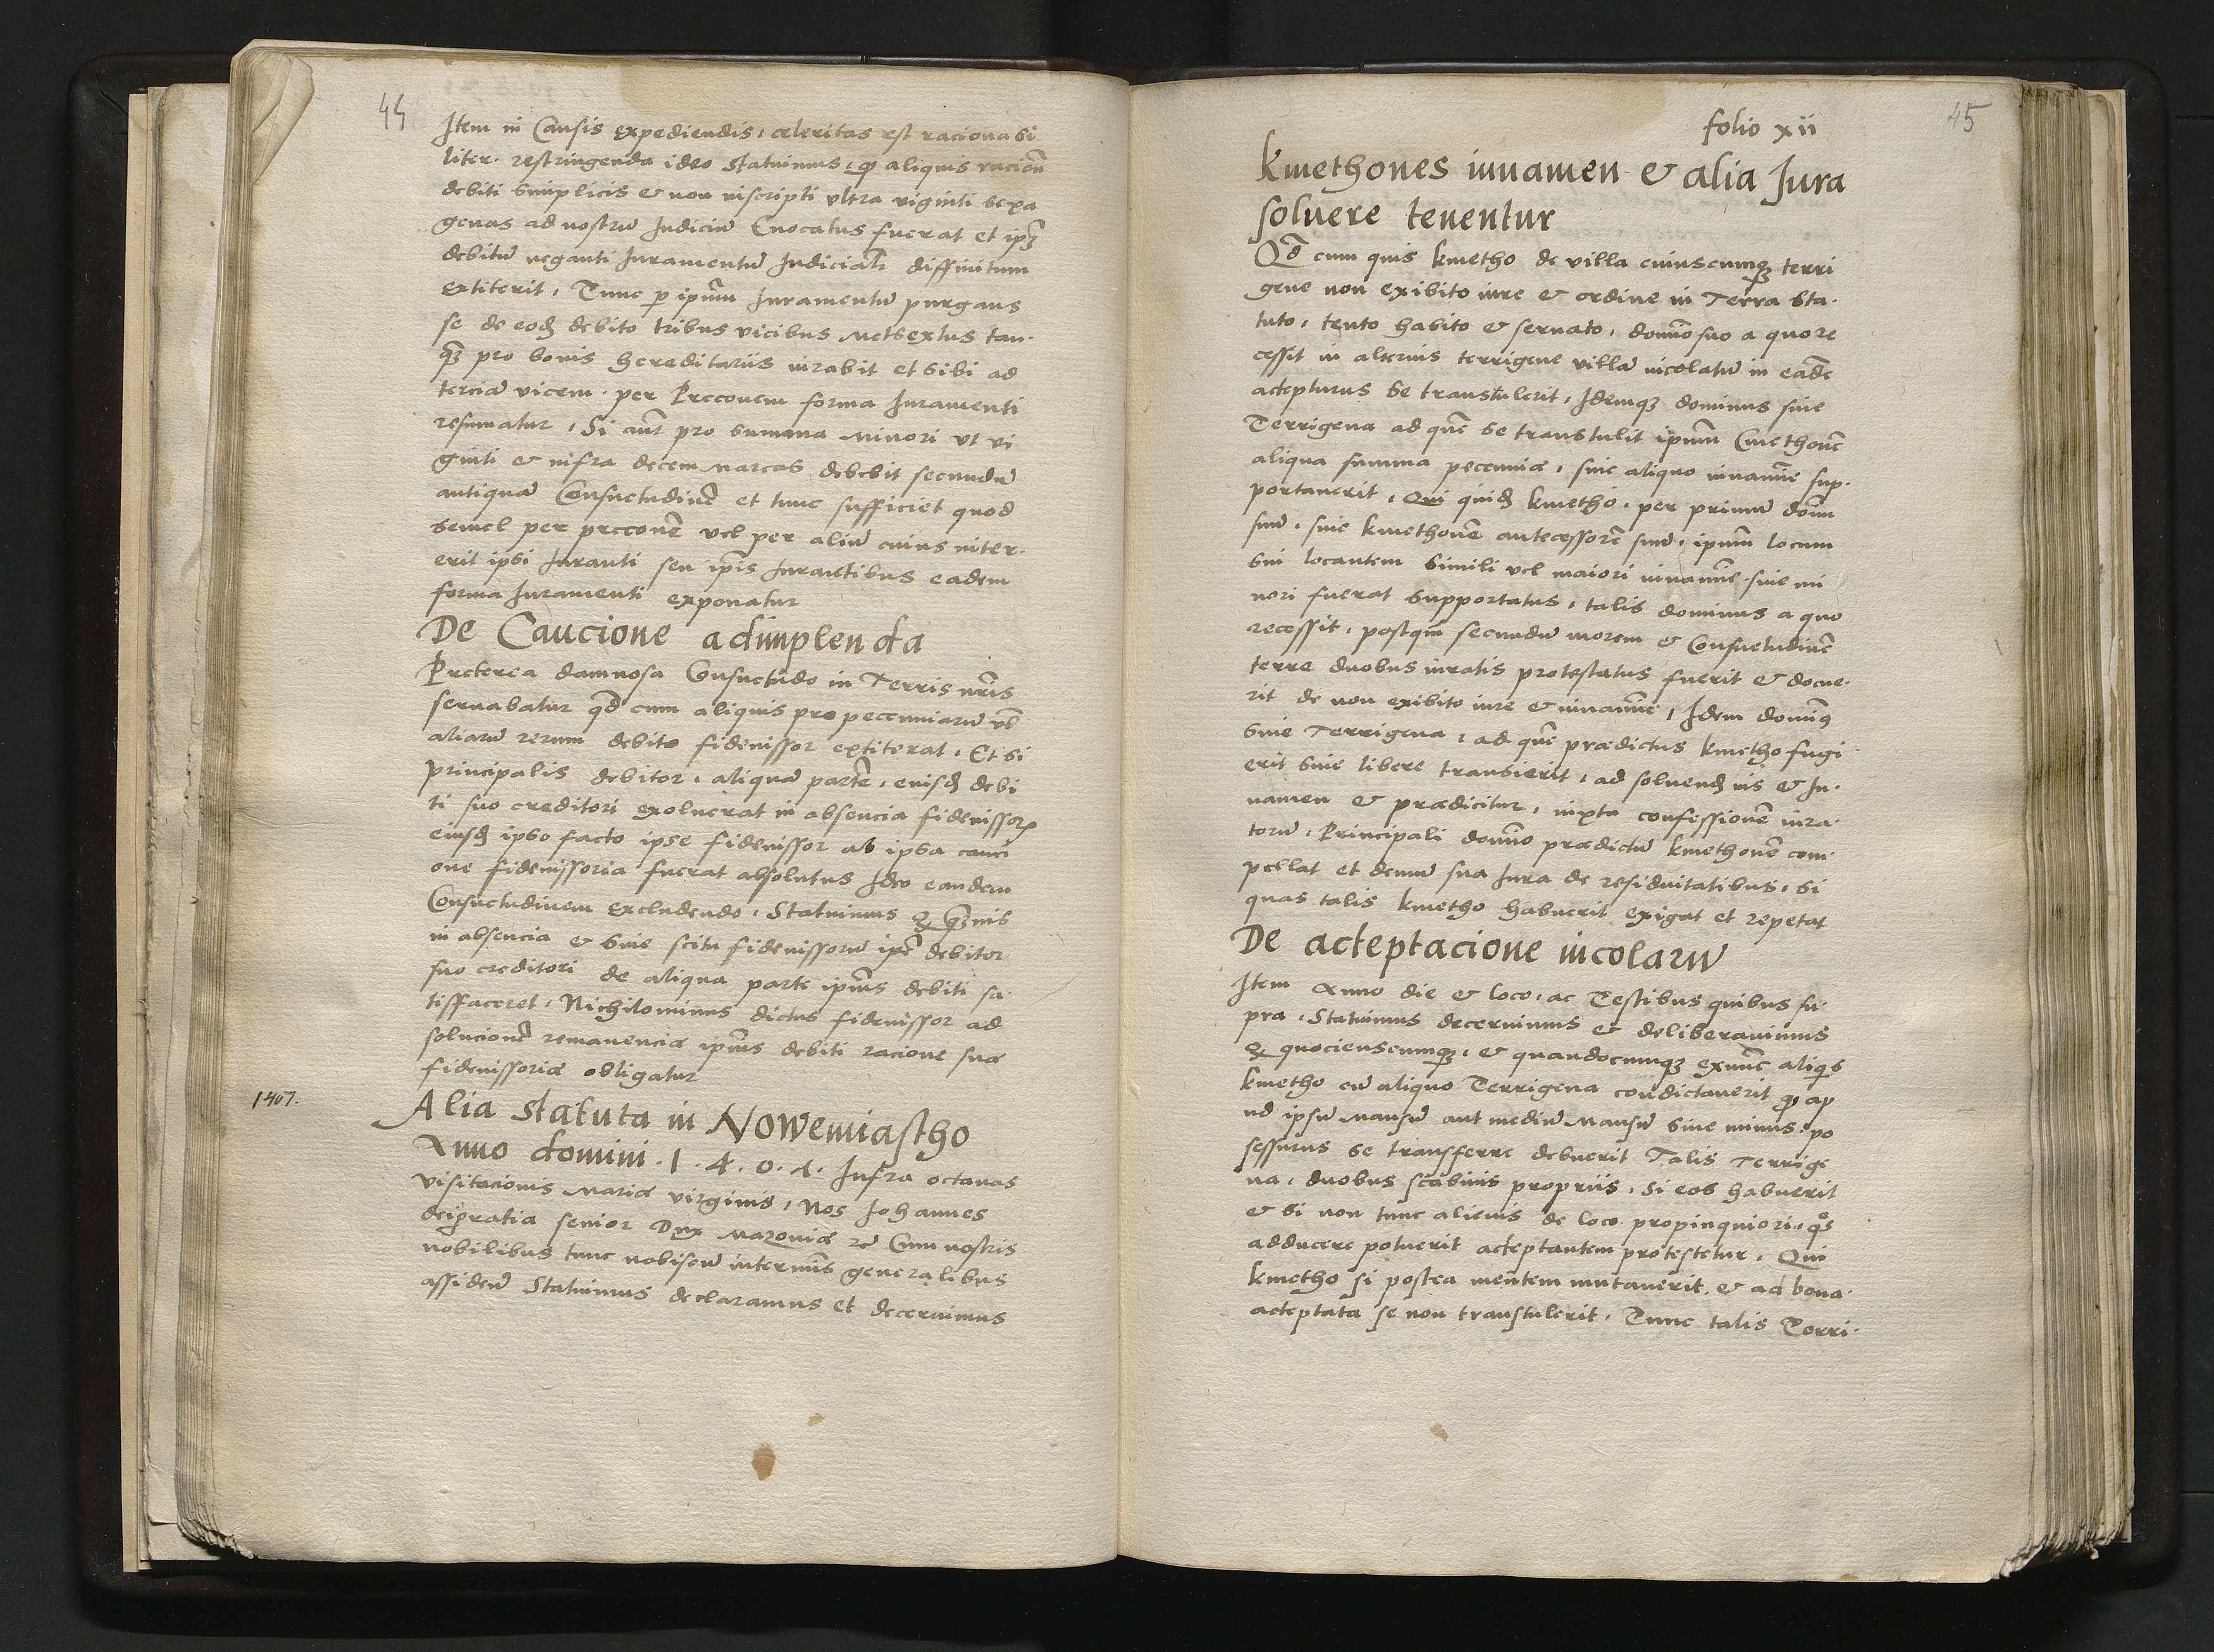 44
Item in Causis expediendis, celeritas est racionabi
liter restringenda ideo statuimus, qđ aliquis racioñ
debiti simplicis & non inscripti ultra viginti sexa
genas ad nostrũ Judiciũ Evocatus fuerat et ipm̃
debitũ neganti Juramentũ Judicialr̃ diffinitum
extiterit, Tunc p ipsum̃ Juramentũ purgans
se de eodẽ debito tribus vicibus metsextus tan
qm̃ pro bonis hereditariis iurabit et sibi ad
terciã vicem per Preconem forma Juramenti
resumatur, Si aũt pro summa minori ut vi
ginti & infra decem marcas debebit secundũ
antiquã Consuetudinẽ et tunc sufficiet quod
semel per preconẽ vel per aliũ cuius inter
erit ipsi Juranti seu ipīs Jurantibus eadem
forma Juramenti exponatur
De Caucione adimplenda
Preterea damnosa Consuetudo in Terris nr̃is
servabatur qđ cum aliquis pro pecuniarũ vł
aliarũ rerum debito fideiussor extiterat, Et si
principalis debitor, aliquã partẽ, eiusđ debi
ti suo creditori exolverat in absencia fideiussorꝭ
eiusđ ipso facto ipse fideiussor ab ipsa cauci
one fideiussoria fuerat absolutus Ideo eandem
Consuetudinem excludendo, Statuimus q̃ quãvis
in absencia & sine scitu fideiussorũ ipẽ debitor
suo creditori de aliqua parte ipīus debiti sa
tisfaceret, Nichilominus dictus fideiussor ad
solucionẽ remanenciæ ipīus debiti racione suæ
fideiussoriæ obligatur
1407.
Alia statuta in Nowemiastho
Anno domini 1.4.0.7. Infra octavas
visitacionis Mariæ virginis, Nos Johannes
dei gratia senior Dux Mazoviæ rc̃ Cum nostris
nobilibus tunc nobiscũ in termĩs generalibus
assidenr̃ Statuimus declaramus et decernimus
folio xii
45
Kmethones iuvamen & alia Jura
solvere tenentur
Qđ cum quis kmetho de villa cuiuscumqꝫ terri
gene non exibito iure & ordine in Terra sta
tuto, tento habito & servato, domĩo suo a quo re
cessit in alterius terrigene villã incolatũ in eadẽ
actepturus se transtulerit, Idemqꝫ dominus sive
Terrigena ad quẽ se transtulit ipsum̃ Cmethonẽ
aliqua summa pecuniæ, sive aliquo iuvamĩe sup
portaverit, Qui quiđ kmetho, per primũ dom̃
suũ, sive kmethonẽ antecessorẽ suũ, ipsum̃ locum
sui locantem simili vel maiori iuvamĩe sive mi
nori fuerat supportatus, talis dominus a quo
recessit, postqm̃ secundũ morem & Consuetudinẽ
terre duobus iuratis protestatus fuerit & docue
rit de non exibito iure & iuvamĩe, Idem domin9
sive Terrigena, ad quẽ prædictus kmetho fugi
erit sive libere transierit, ad solvenđ ius & Ju
vamen & prædicitur, iuxta confessionẽ iura
torũ, Principali domĩo prædictũ kmethonẽ com
pellat et demũ sua Jura de residuitatibus, si
quas talis kmetho habuerit exigat et repetat
De acteptacione incolarũ
Item Anno die & loco, ac Testibus quibus su
pra, Statuimus decernimus & deliberavimus
q̃ quocienscumqꝫ, & quandocumqꝫ exnũc aliqis
kmetho cũ aliquo Terrigena condictaverit qđ ap
ud ipsũ Mansũ aut mediũ Mansũ sive minus po
sessurus se transferre debuerit Talis Terrige
na, duobus scabinis propriis, Si eos habuerit
& si non tunc alienis de loco propinquiori, qos
adducere potuerit acteptantem protestetur, Qui
kmetho si postea mentem mutaverit & ad bona
acteptata se non transtulerit, Tunc talis Terri